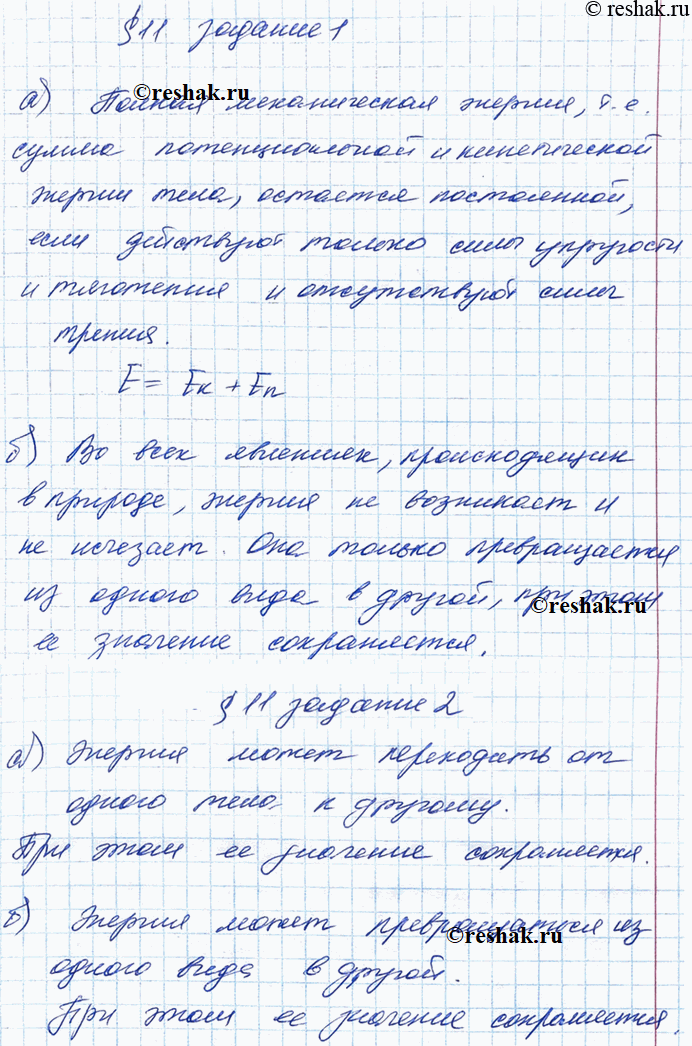 © reshak.ru
§ 11 задание 1
©reshak.ru
а) Полная механическая энергия, т.е.
сумма потенциальной и кинетической
энергии тела, остается постоянной,
если действуют только силы упругости
и тяготения и отсутствуют силы
трения.
E = Eк + Eп
б) Во всех явлениях, происходящих
в природе, энергия не возникает и
не исчезает. Она только превращается
из одного вида в другой, при этом
©reshak.ru
ее значение сохраняется.
§ 11 задание 2
а) Энергия может переходить от
одного тела к другому.
При этом ее значение сохраняется.
б) Энергия может превращаться из
©reshak.ru
одного вида в другой.
При этом ее значение сохраняется.